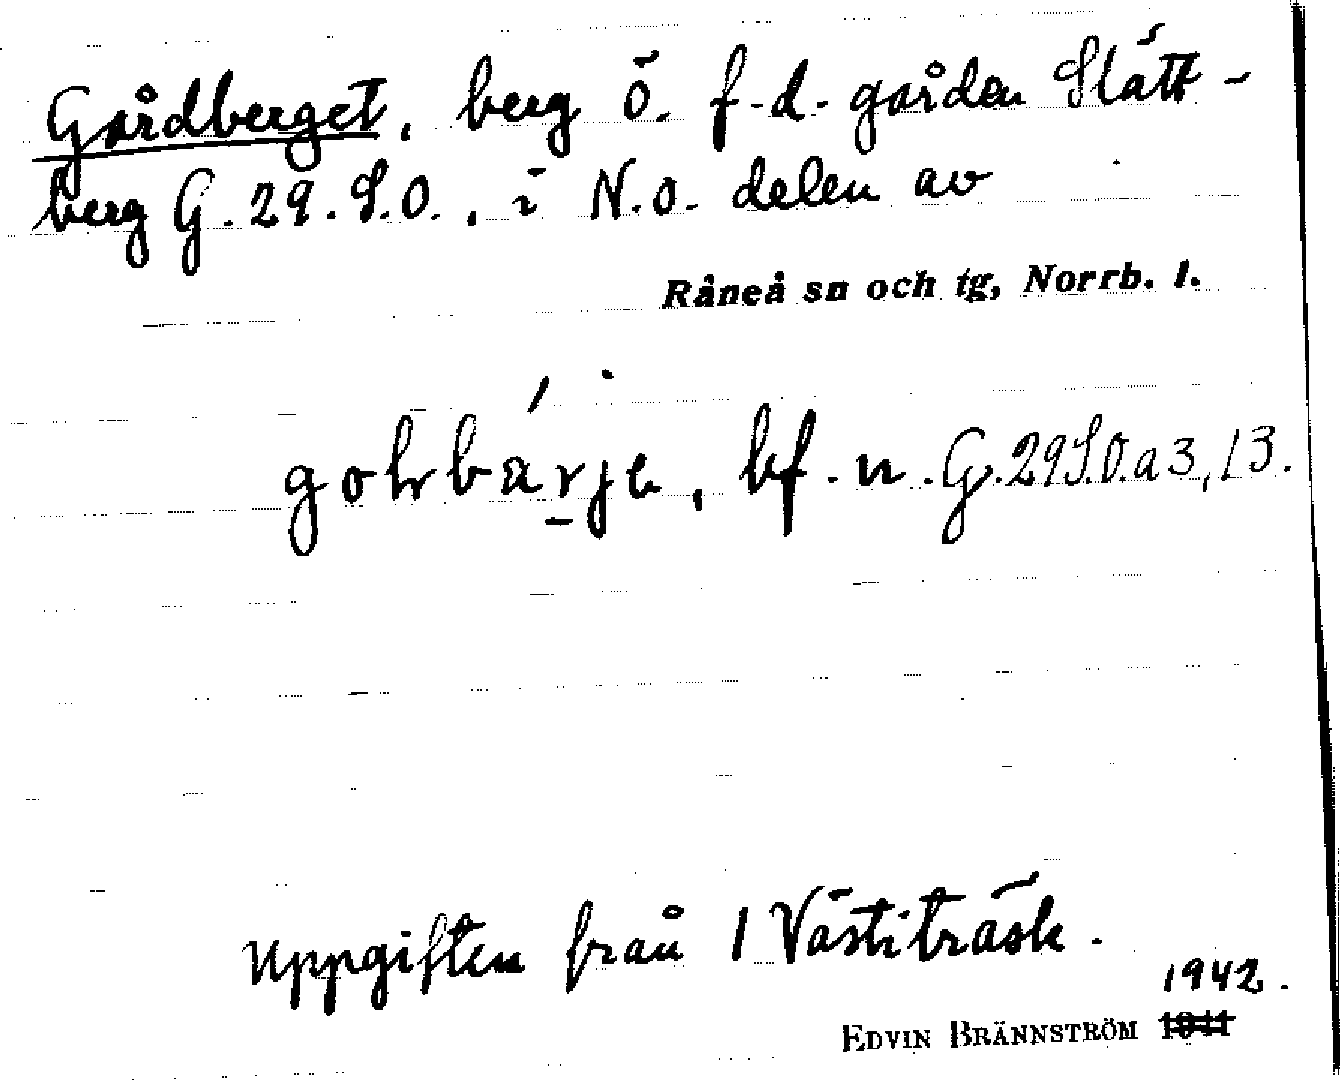 Gårdberget, berg ö. f.d. gården Slätt-
berg G.29.S.O., i N.O. delen av
Råneå sn och tg, Norrb. l.
gohrbärje, bf. n. G.29S.O.a3,13.
Uppgiften från 1 Västiträsk.
1942.
EDVIN BRÄNNSTRÖM 1941